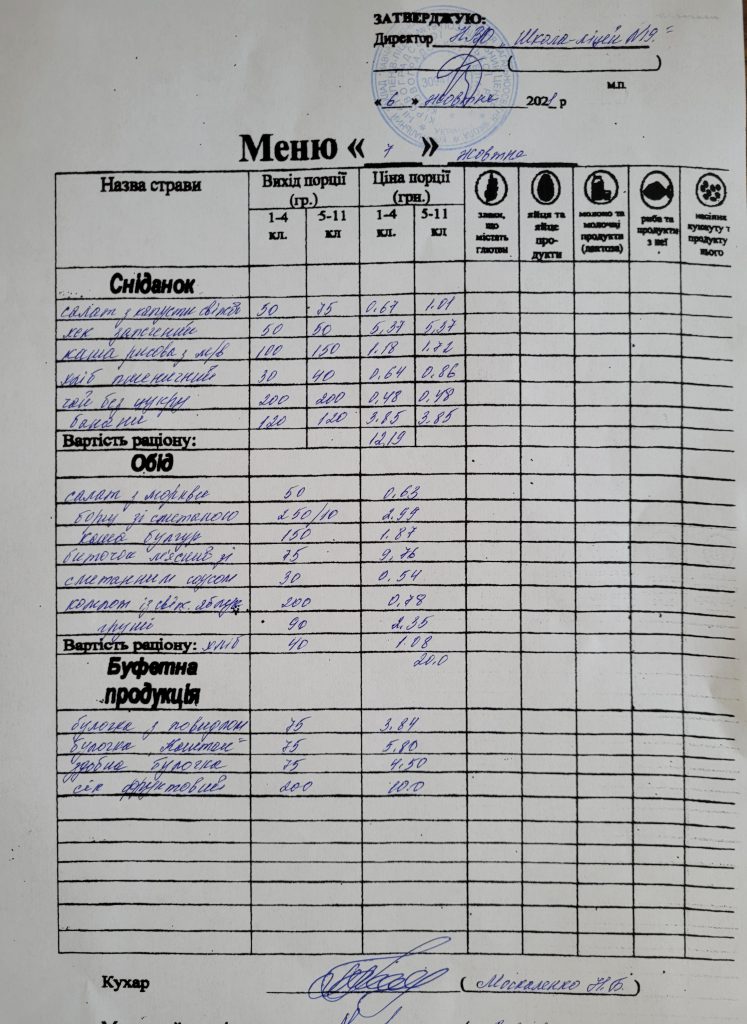 ЗАТВЕРДЖУЮ:
Директор НВО Школа-ліцей №19"
( )
м.п.
« 6 » жовтня 2021 р
Меню « 7 » жовтня
Назва страви Вихід порції (гр.) Ціна порції (грн.)
1-4 кл. 5-11 кл 1-4 кл. 5-11 кл
злаки, що містять глютен
яйця та яйце продукти
молоко та молочні продукти (лактоза)
риба та продукти з неї
насіння кунжуту т продукту нього
Сніданок
салат з капусти свіжої 50 75 0,67 1.01
хек запечений 50 50 5,37 5,37
каша рисова з м/в 100 150 1.18 1.72
хліб пшеничний 30 40 0,64 0,86
чай без цукру 200 200 0,48 0,48
банани 120 120 3.85 3,85
Вартість раціону: 12,19
Обід
салат з моркви 50 0,63
борщ зі сметаною 250/10 2,99
каша булгур 150 1.87
биточок м'ясний зі 75 9,76
сметанним соусом 30 0.54
компот із свіж. яблук 200 0,78
груші 90 2,35
Вартість раціону: хліб 40 1.08
20.0
Буфетна
продукція
булочка з повидлом 75 3.84
булочка "Каштан" 75 5,80
здобна булочка 75 4.50
сік фруктовий 200 10.0
Кухар ( Москаленко Н.Б. )